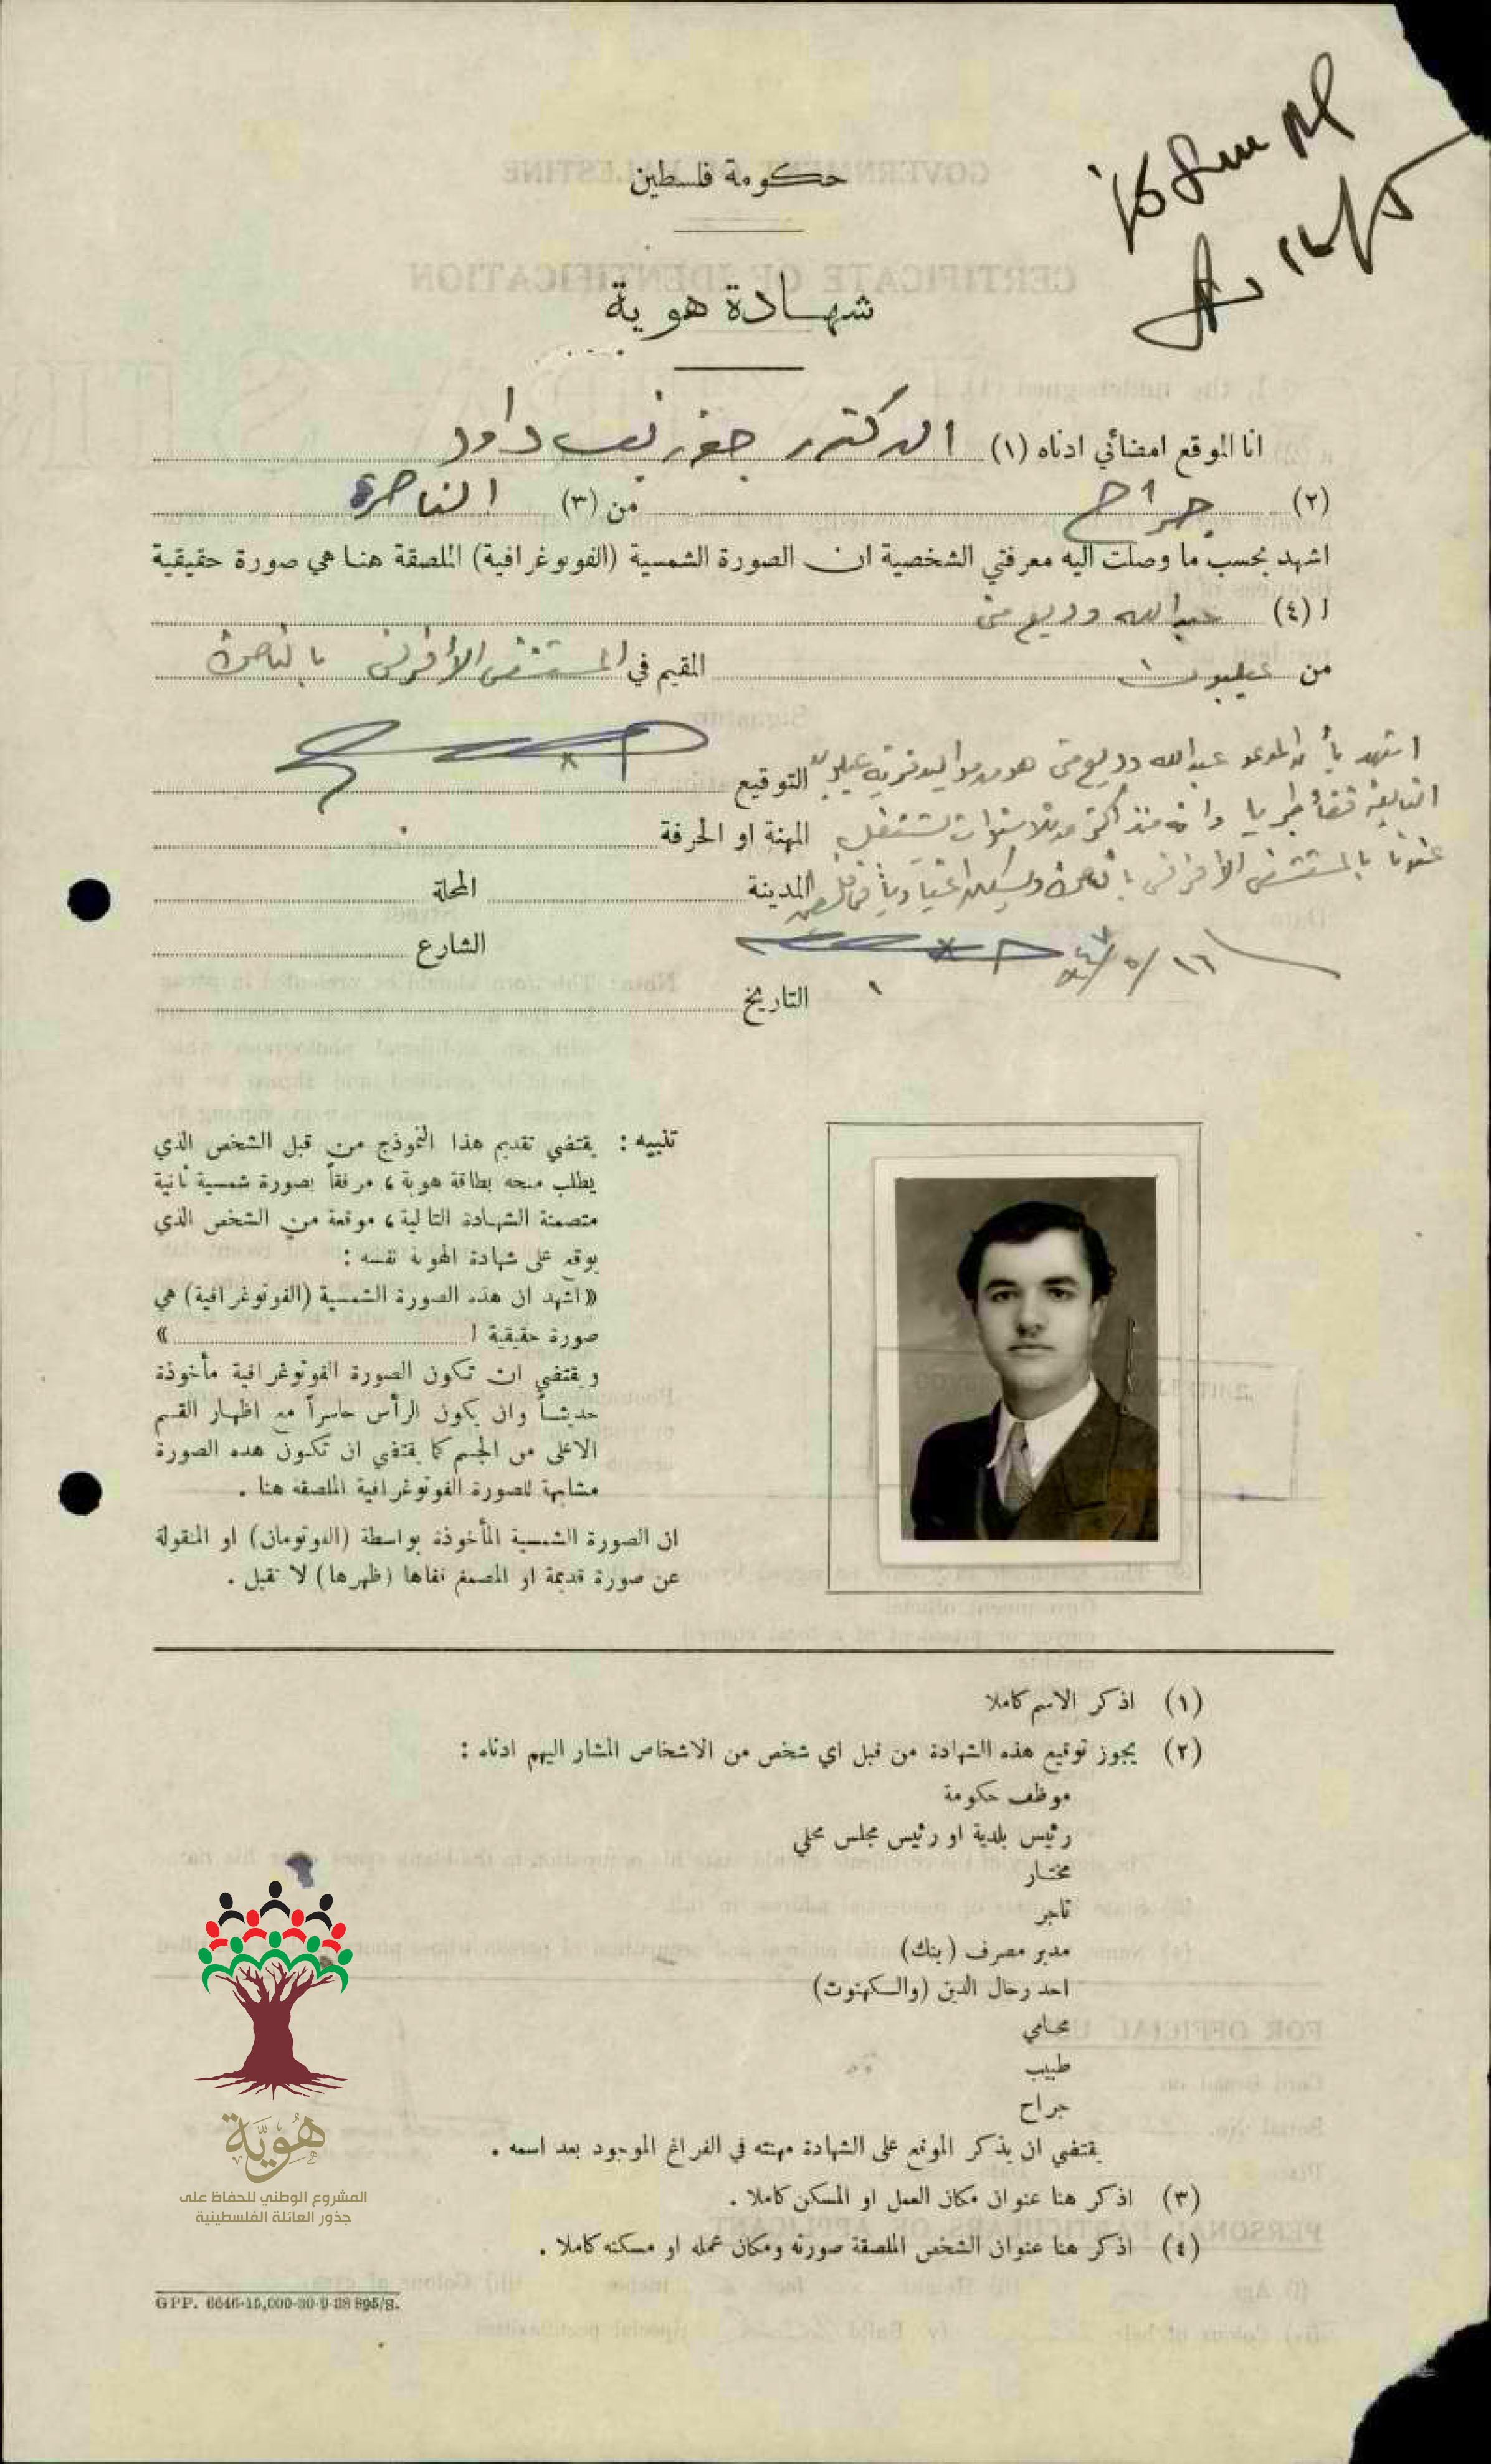 حكومة فلسطين
شهادة هوية
انا الموقع امضائي ادناه (١) الدكتور داود
(٢) جراح من (٣) الناصرة
اشهد بحسب ما وصلت اليه معرفتي الشخصية ان الصورة الشمسية (الفوتوغرافية) الملصقة هنا هي صورة حقيقية
ا (٤) عبدالله وديع متى
من عيلبون المقيم في المستشفى الأفرنسي بالناصرة
اشهد بأن المدعو عبدالله وديع متى هو من مواليد قرية عيلبون
التابعة قضاء طبريا وانه منذ اكثر من ثلاث سنوات يشتغل
بالمستشفى الافرنسي بالناصرة
١٦/٥/٤٧
التوقيع
المهنة او الحرفة
المدينة المحلة
الشارع
التاريخ
تنبيه : يقتضي تقديم هذا النموذج من قبل الشخص الذي
يطلب منحه بطاقة هوية ، مرفقاً بصورة شمسية ثانية
متضمنة الشهادة التالية ، موقعة من الشخص الذي
يوقع على شهادة الهوية نفسه :
« اشهد ان هذه الصورة الشمسية (الفوتوغرافية) هي
صورة حقيقية ا »
ويقتضي ان تكون الصورة الفوتوغرافية مأخوذة
حديثاً وان يكون الرأس حاسراً مع اظهار القسم
الاعلى من الجسم كما يقتضي ان تكون هذه الصورة
مشابهة للصورة الفوتوغرافية الملصقة هنا .
ان الصورة الشمسية المأخوذة بواسطة (الاوتومان) او المنقولة
عن صورة قديمة او المصمغ قفاها (ظهرها) لا تقبل .
(١) اذكر الاسم كاملا
(٢) يجوز توقيع هذه الشهادة من قبل اي شخص من الاشخاص المشار اليهم ادناه :
موظف حكومة
رئيس بلدية او رئيس مجلس محلي
مختار
تاجر
مدير مصرف (بنك)
احد رجال الدين (والكهنوت)
محامي
طبيب
جراح
يقتضي ان يذكر الموقع على الشهادة مهنته في الفراغ الموجود بعد اسمه .
(٣) اذكر هنا عنوان مكان العمل او المسكن كاملا .
(٤) اذكر هنا عنوان الشخص الملصقة صورته ومكان عمله او مسكنه كاملا .
GPP. 6646-15,000-30-9-38 895/S.
هُوِيَّة
المشروع الوطني للحفاظ على
جذور العائلة الفلسطينية